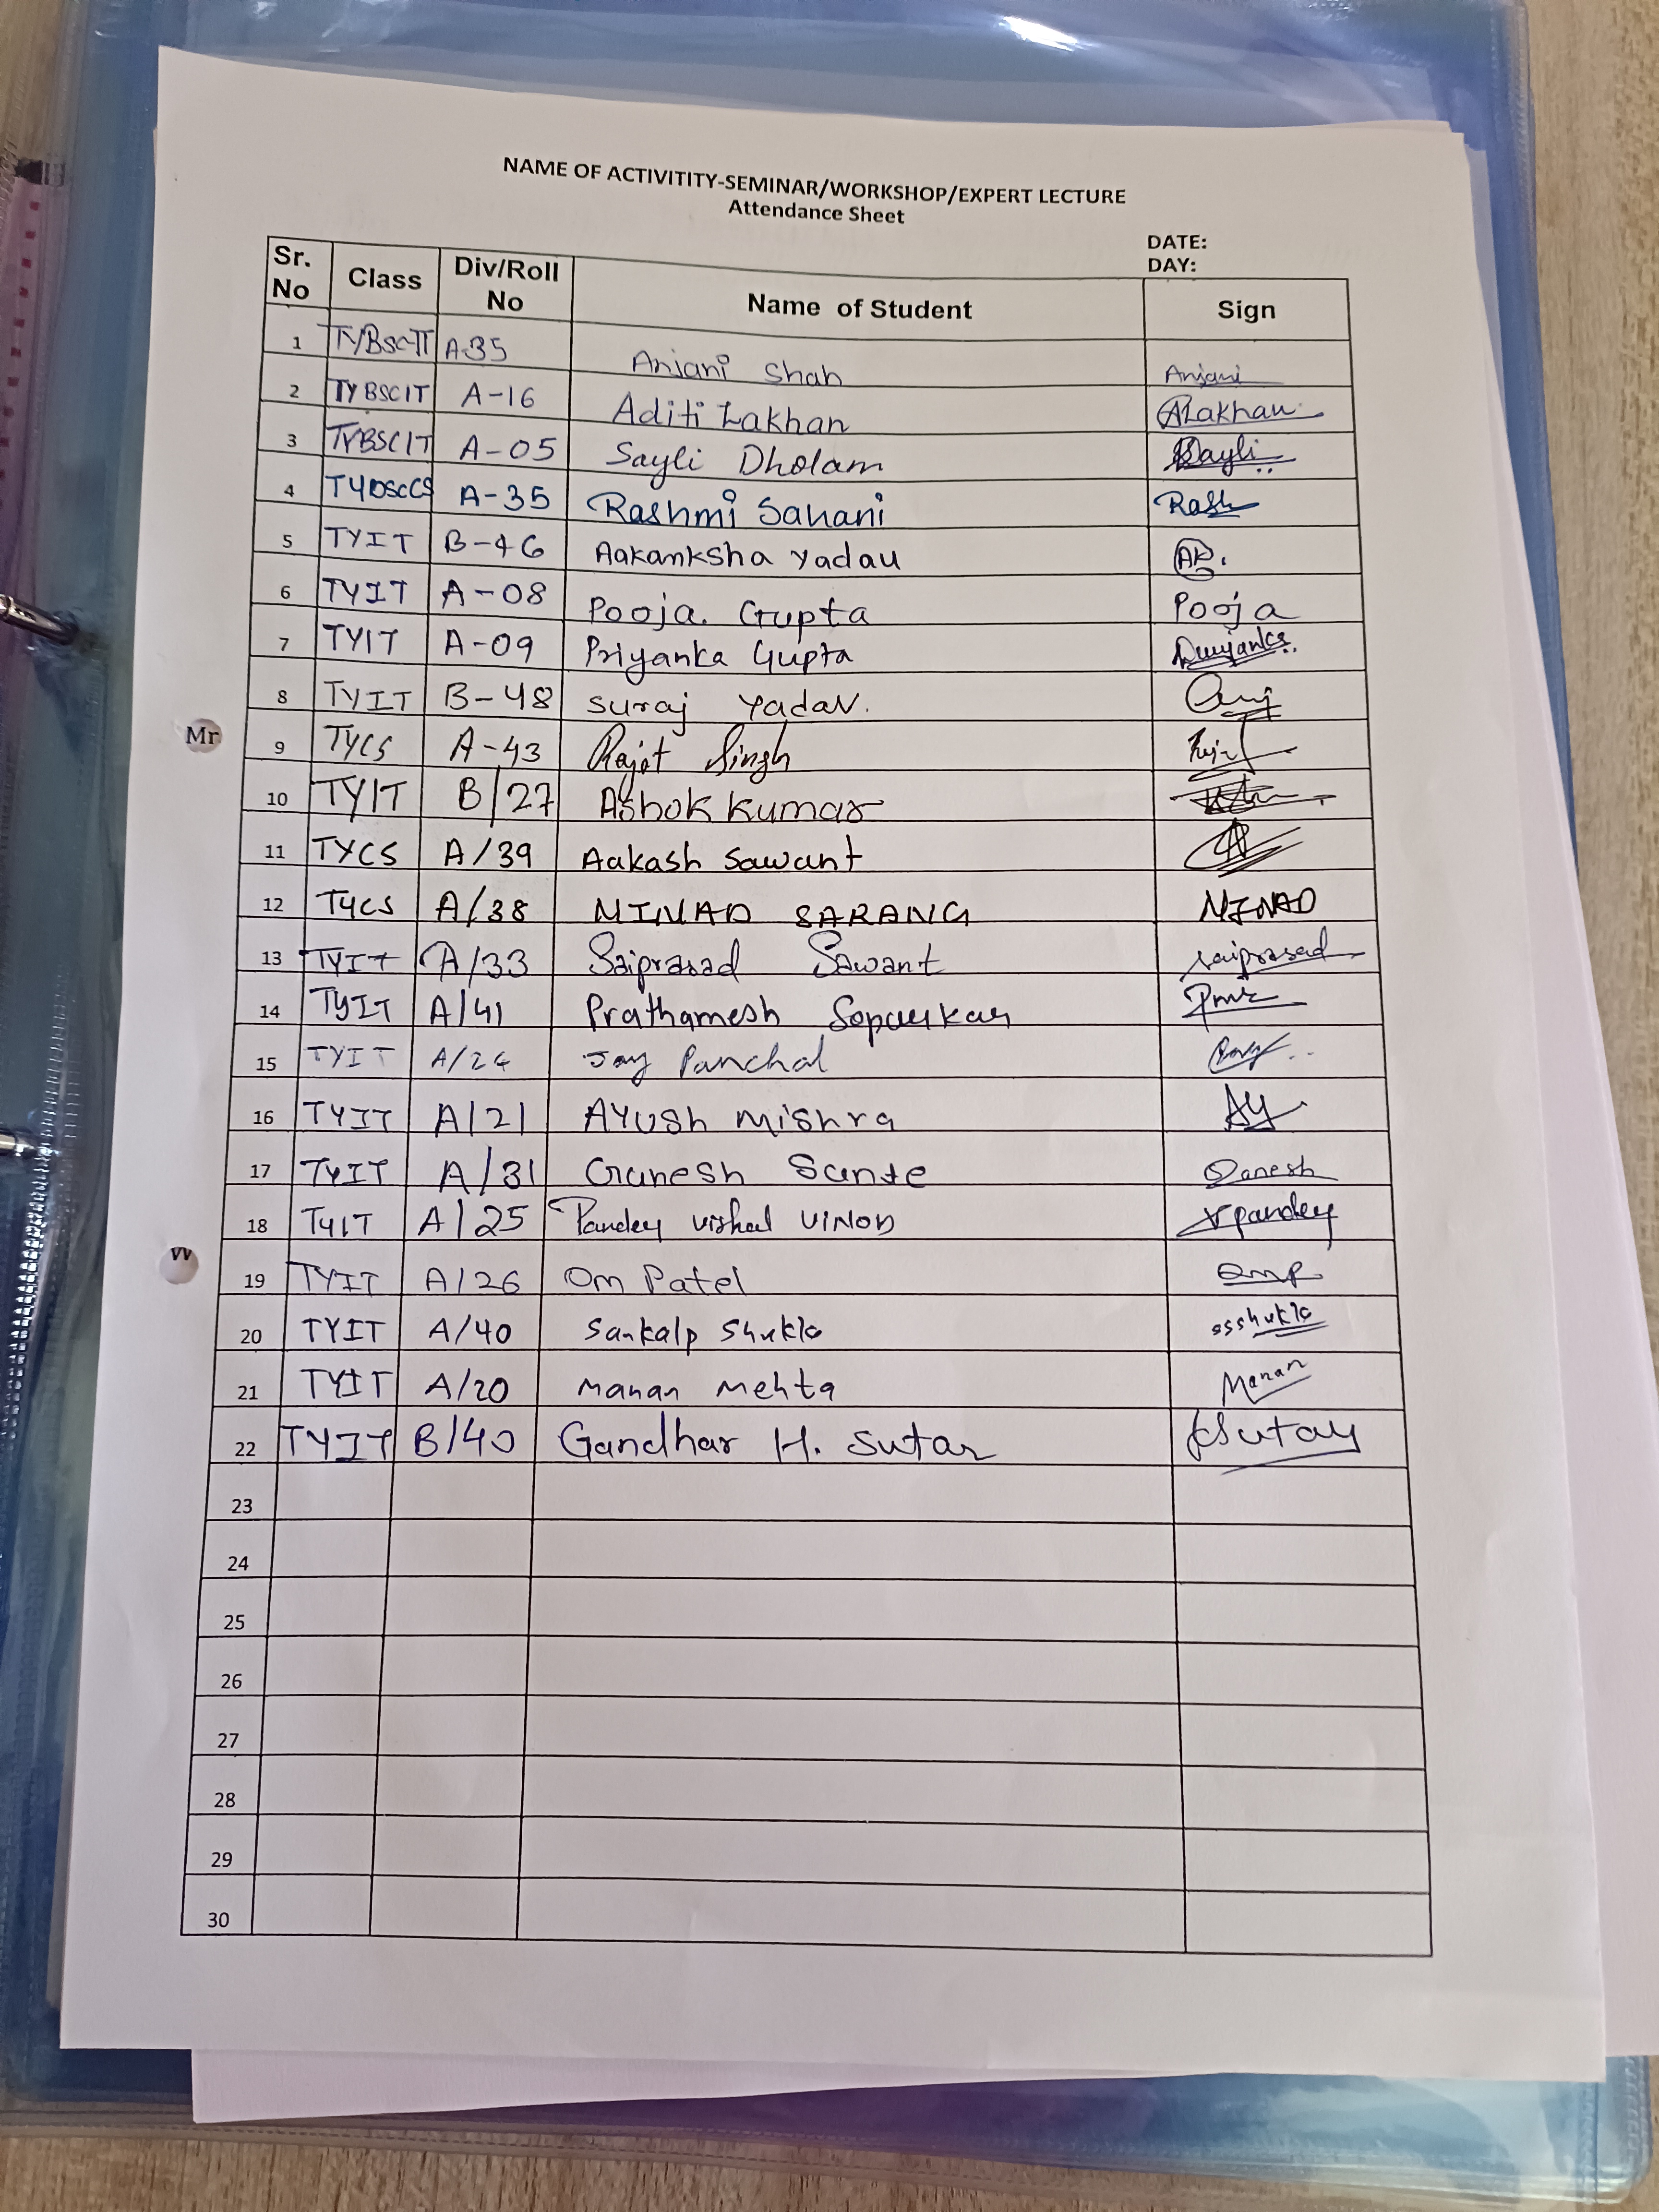 NAME OF ACTIVITITY-SEMINAR/WORKSHOP/EXPERT LECTURE
Attendance Sheet
DATE:
DAY:
Sr. No Class Div/Roll No Name of Student Sign
1 TYBSC-IT A-35 Anjani Shah Anjani
2 TYBSCIT A-16 Aditi Lakhan ALakhan
3 TYBSCIT A-05 Sayli Dholam Sayli
4 TYBSCCS A-35 Rashmi Sahani Rash
5 TYIT B-46 Aakanksha Yadav AK.
6 TYIT A-08 Pooja Gupta Pooja
7 TYIT A-09 Priyanka Gupta
8 TYIT B-48 suraj yadav.
9 TYCS A-43 Rajat Singh
10 TYIT B/27 Ashok kumar
11 TYCS A/39 Aakash Sawant
12 TYCS A/38 NINAD SARANG NINAD
13 TYIT A/33 Saiprasad Sawant saiprasad
14 TYIT A/41 Prathamesh Sopaurkar
15 TYIT A/24 Jay Panchal
16 TYIT A/21 AYUSH MISHRA AY
17 TYIT A/31 Ganesh Sante Ganesh
18 TYIT A/25 Pandey vishal VINOD vpandey
19 TYIT A/26 Om Patel omp
20 TYIT A/40 Sankalp Shukla ssshukla
21 TYIT A/20 Manan Mehta Manan
22 TYIT B/40 Gandhar H. Sutar GSutar
23
24
25
26
27
28
29
30
Mr